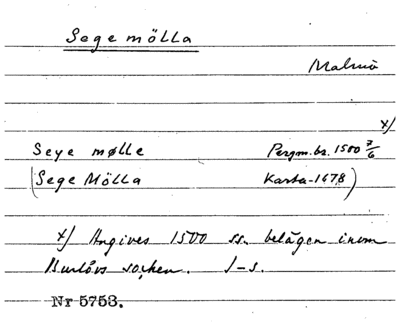 Sege mölla
Malmö
x/
Seye mølle Pergm.br. 1500 7/6
(Sege Mölla Karta 1678)
x/ Angives 1500 ss. belägen inom
Burlövs socken. J-s.
Nr 5753.